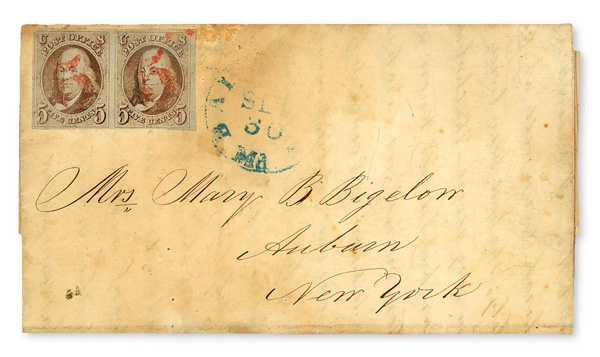 U S U S
POST OFFICE POST OFFICE
5 FIVE CENTS 5 5 FIVE CENTS 5
SE
30
Mrs Mary B Bigelow
Auburn
New York